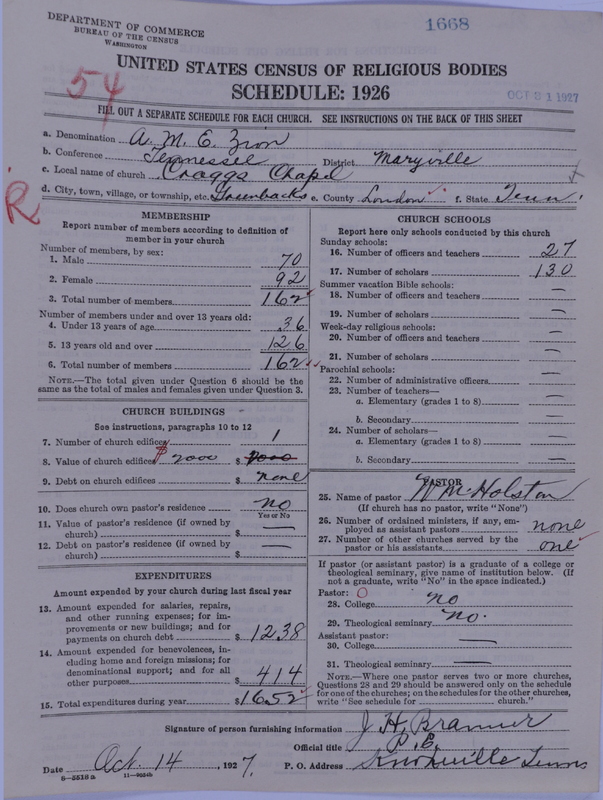 DEPARTMENT OF COMMERCE
BUREAU OF THE CENSUS
WASHINGTON
1668
54
UNITED STATES CENSUS OF RELIGIOUS BODIES
SCHEDULE: 1926
OCT 31 1927
FILL OUT A SEPARATE SCHEDULE FOR EACH CHURCH. SEE INSTRUCTIONS ON THE BACK OF THIS SHEET
a. Denomination A. M. E. Zion
b. Conference Tennessee District Maryville
c. Local name of church Craggs Chapel
d. City, town, village, or township, etc. Greenbacks e. County Loudon f. State Tenn.
R
MEMBERSHIP
Report number of members according to definition of
member in your church
Number of members, by sex:
1. Male 70
2. Female 92
3. Total number of members 162
Number of members under and over 13 years old:
4. Under 13 years of age 36
5. 13 years old and over 126
6. Total number of members 162
NOTE.—The total given under Question 6 should be
same as the total of males and females given under Question 3.
CHURCH BUILDINGS
See instructions, paragraphs 10 to 12
7. Number of church edifices 1
8. Value of church edifices 2000 $
9. Debt on church edifices $ none
10. Does church own pastor's residence no
Yes or No
11. Value of pastor's residence (if owned by
church) $ —
12. Debt on pastor's residence (if owned by
church) $ —
EXPENDITURES
Amount expended by your church during last fiscal year
13. Amount expended for salaries, repairs,
and other running expenses; for im-
provements or new buildings; and for
payments on church debt $ 1238
14. Amount expended for benevolences, in-
cluding home and foreign missions; for
denominational support; and for all
other purposes $ 414
15. Total expenditures during year $ 1652
CHURCH SCHOOLS
Report here only schools conducted by this church
Sunday schools:
16. Number of officers and teachers 27
17. Number of scholars 130
Summer vacation Bible schools:
18. Number of officers and teachers —
19. Number of scholars —
Week-day religious schools:
20. Number of officers and teachers —
21. Number of scholars —
Parochial schools:
22. Number of administrative officers —
23. Number of teachers—
a. Elementary (grades 1 to 8) —
b. Secondary —
24. Number of scholars—
a. Elementary (grades 1 to 8) —
b. Secondary —
PASTOR
25. Name of pastor W M Holston
(If church has no pastor, write "None")
26. Number of ordained ministers, if any, em-
ployed as assistant pastors none
27. Number of other churches served by the
pastor or his assistants one
If pastor (or assistant pastor) is a graduate of a college or
theological seminary, give name of institution below. (If
not a graduate, write "No" in the space indicated.)
Pastor: O
28. College no
29. Theological seminary no.
Assistant pastor:
30. College —
31. Theological seminary —
NOTE.—Where one pastor serves two or more churches,
Questions 28 and 29 should be answered only on the schedule
for one of the churches; on the schedules for the other churches,
write "See schedule for church."
Signature of person furnishing information J. H.
Official title P. E.
Date Oct. 14, 1927. P. O. Address Knoxville Tenns
6—5518a 11—9024b